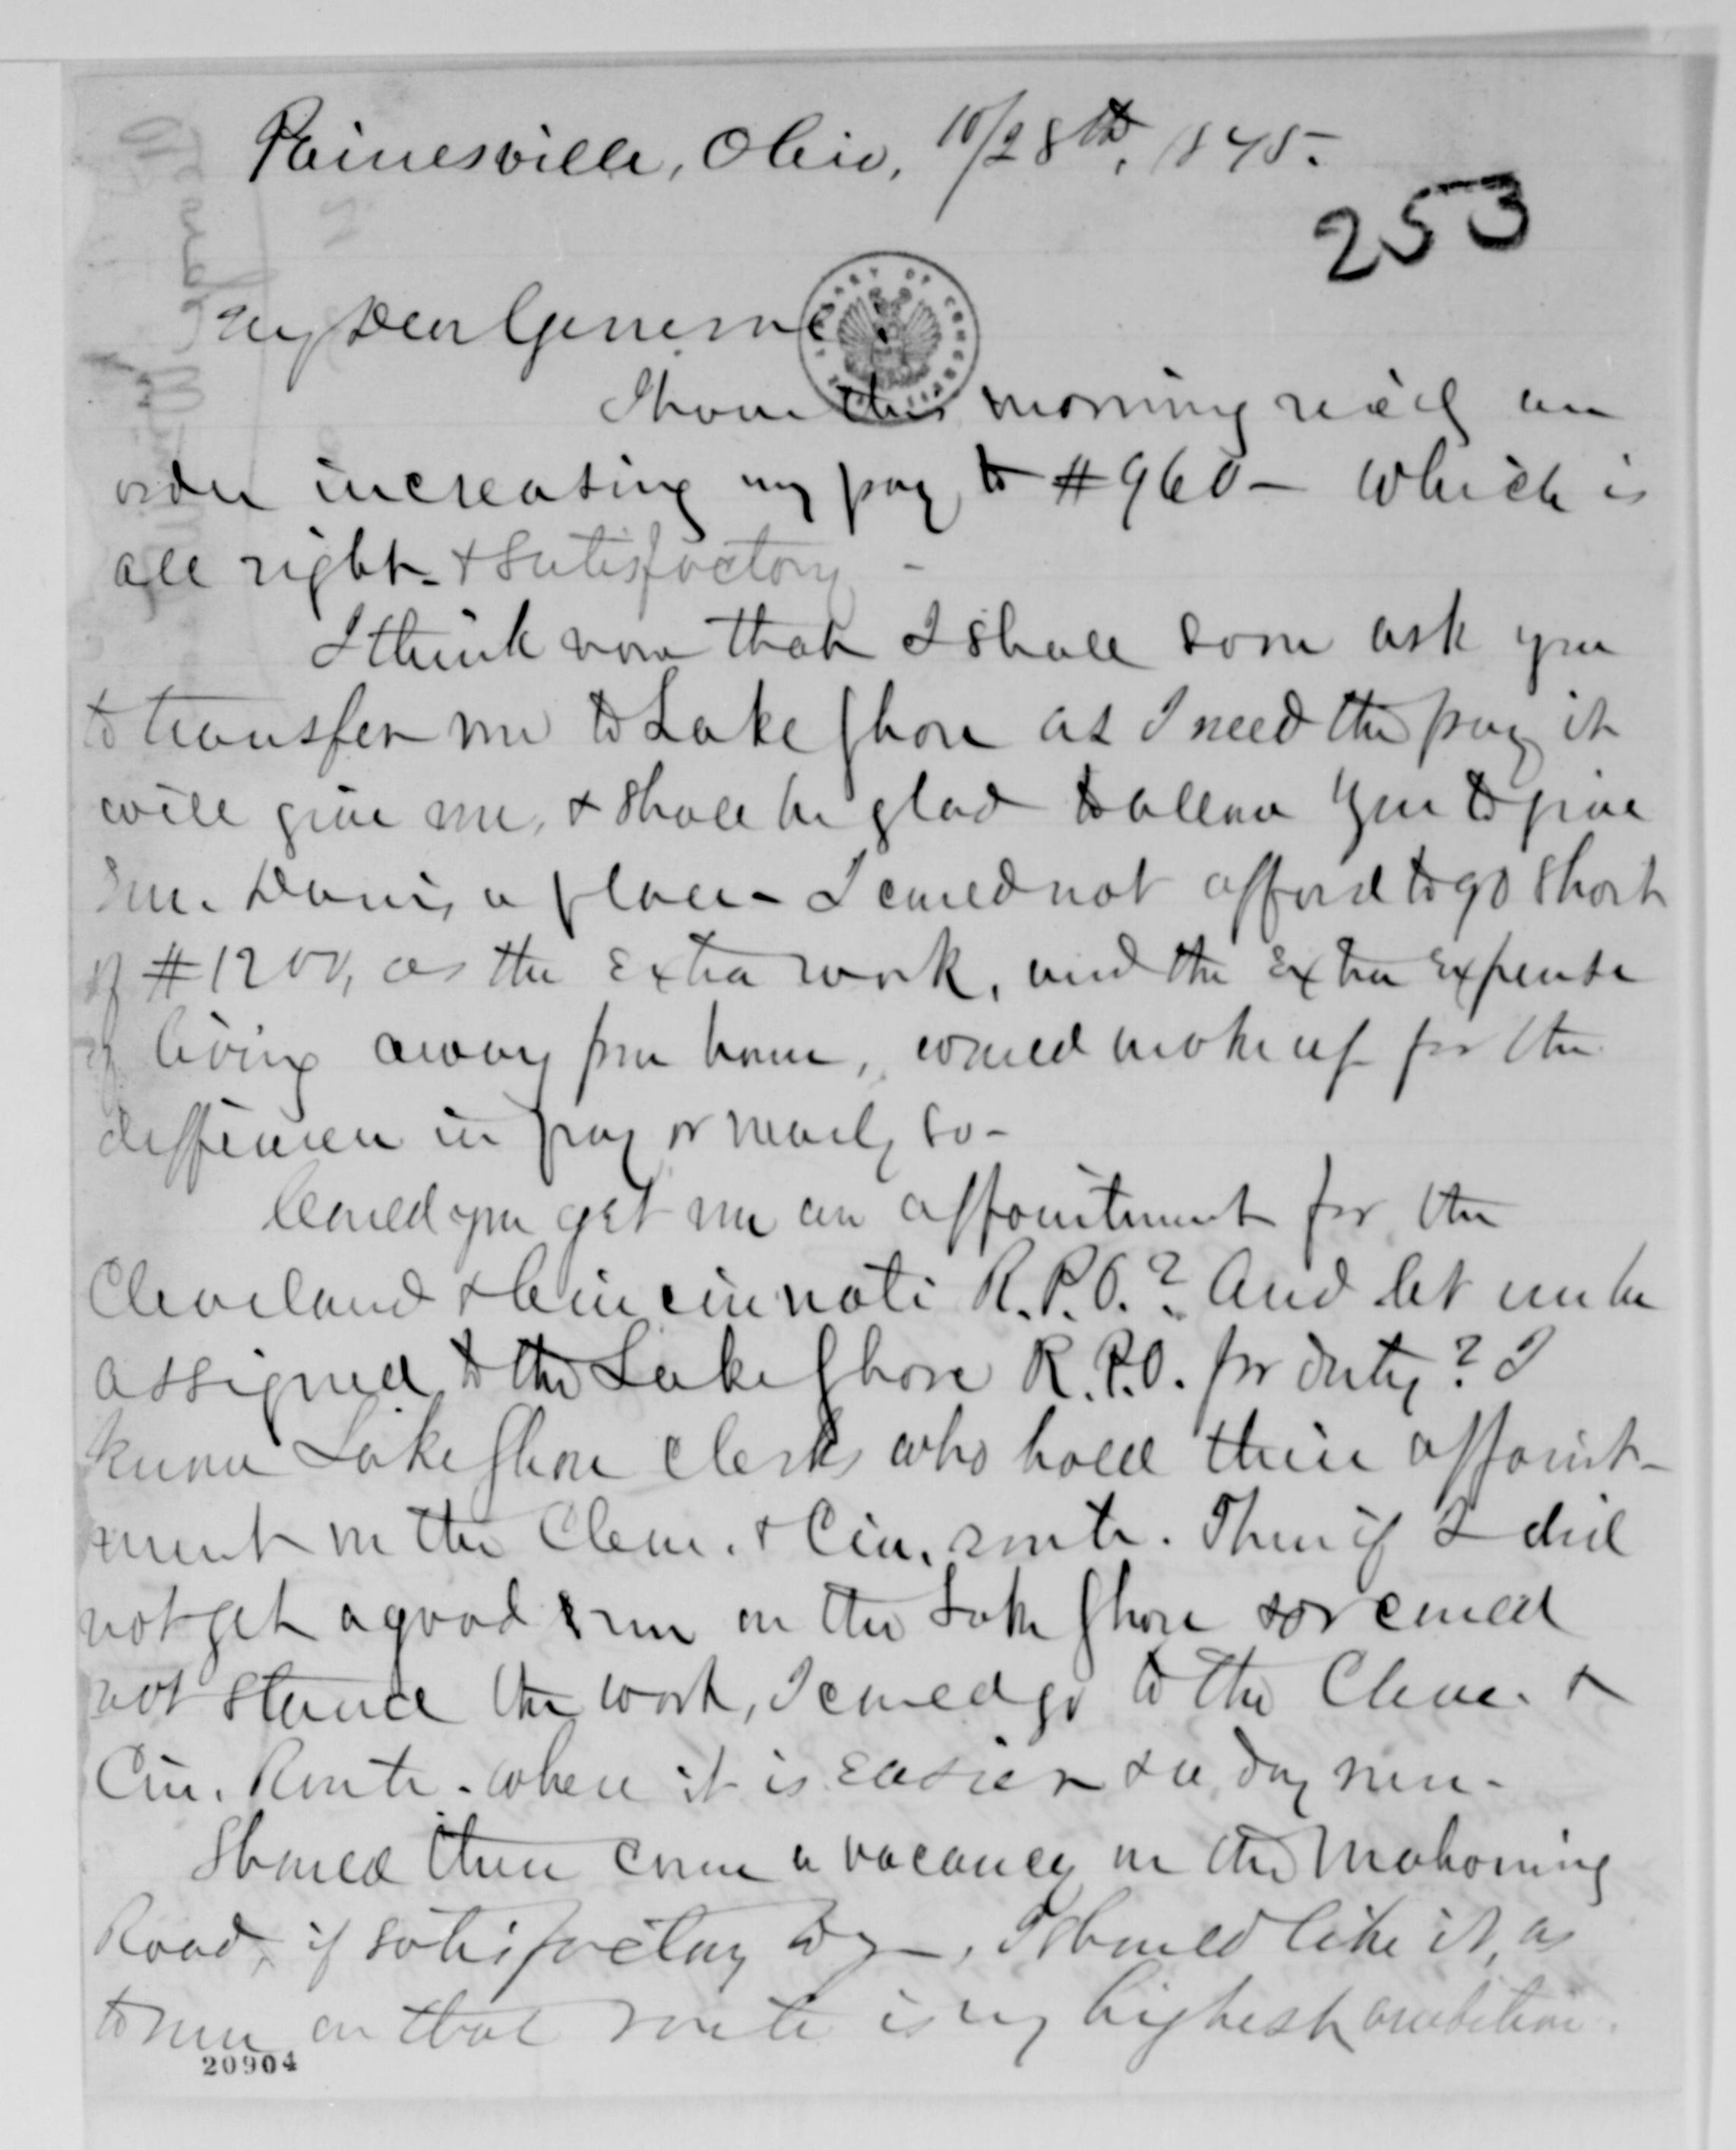 Painesville, Ohio, 10/28th, 1875.
253
My Dear General
LIBRARY OF CONGRESS
I have this morning rec'd an
order increasing my pay to $960 - which is
all right - & satisfactory -
I think now that I shall soon ask you
to transfer me to Lake Shore as I need the pay it
will give me, & shall be glad to allow you to give
Davis a place - I could not afford to go short
of $1200, as the extra work, and the extra expense
of living away from home, would make up for the
difference in pay or nearly so -
Could you get me an appointment for the
Cleveland & Cincinnati R.P.O.? And let me be
assigned to the Lake Shore R.P.O. for duty? I
know Lake Shore clerks who hold their appoint-
ment on the Cleve. & Cin. route. Then if I did
not get a good run on the Lake Shore or could
not stand the work, I could go to the Cleve. &
Cin. Route - where it is easier & a day run -
Should there come a vacancy on the Mahoning
Road, if satisfactory to you, I should like it, as
to run on that route is my highest ambition.
20904